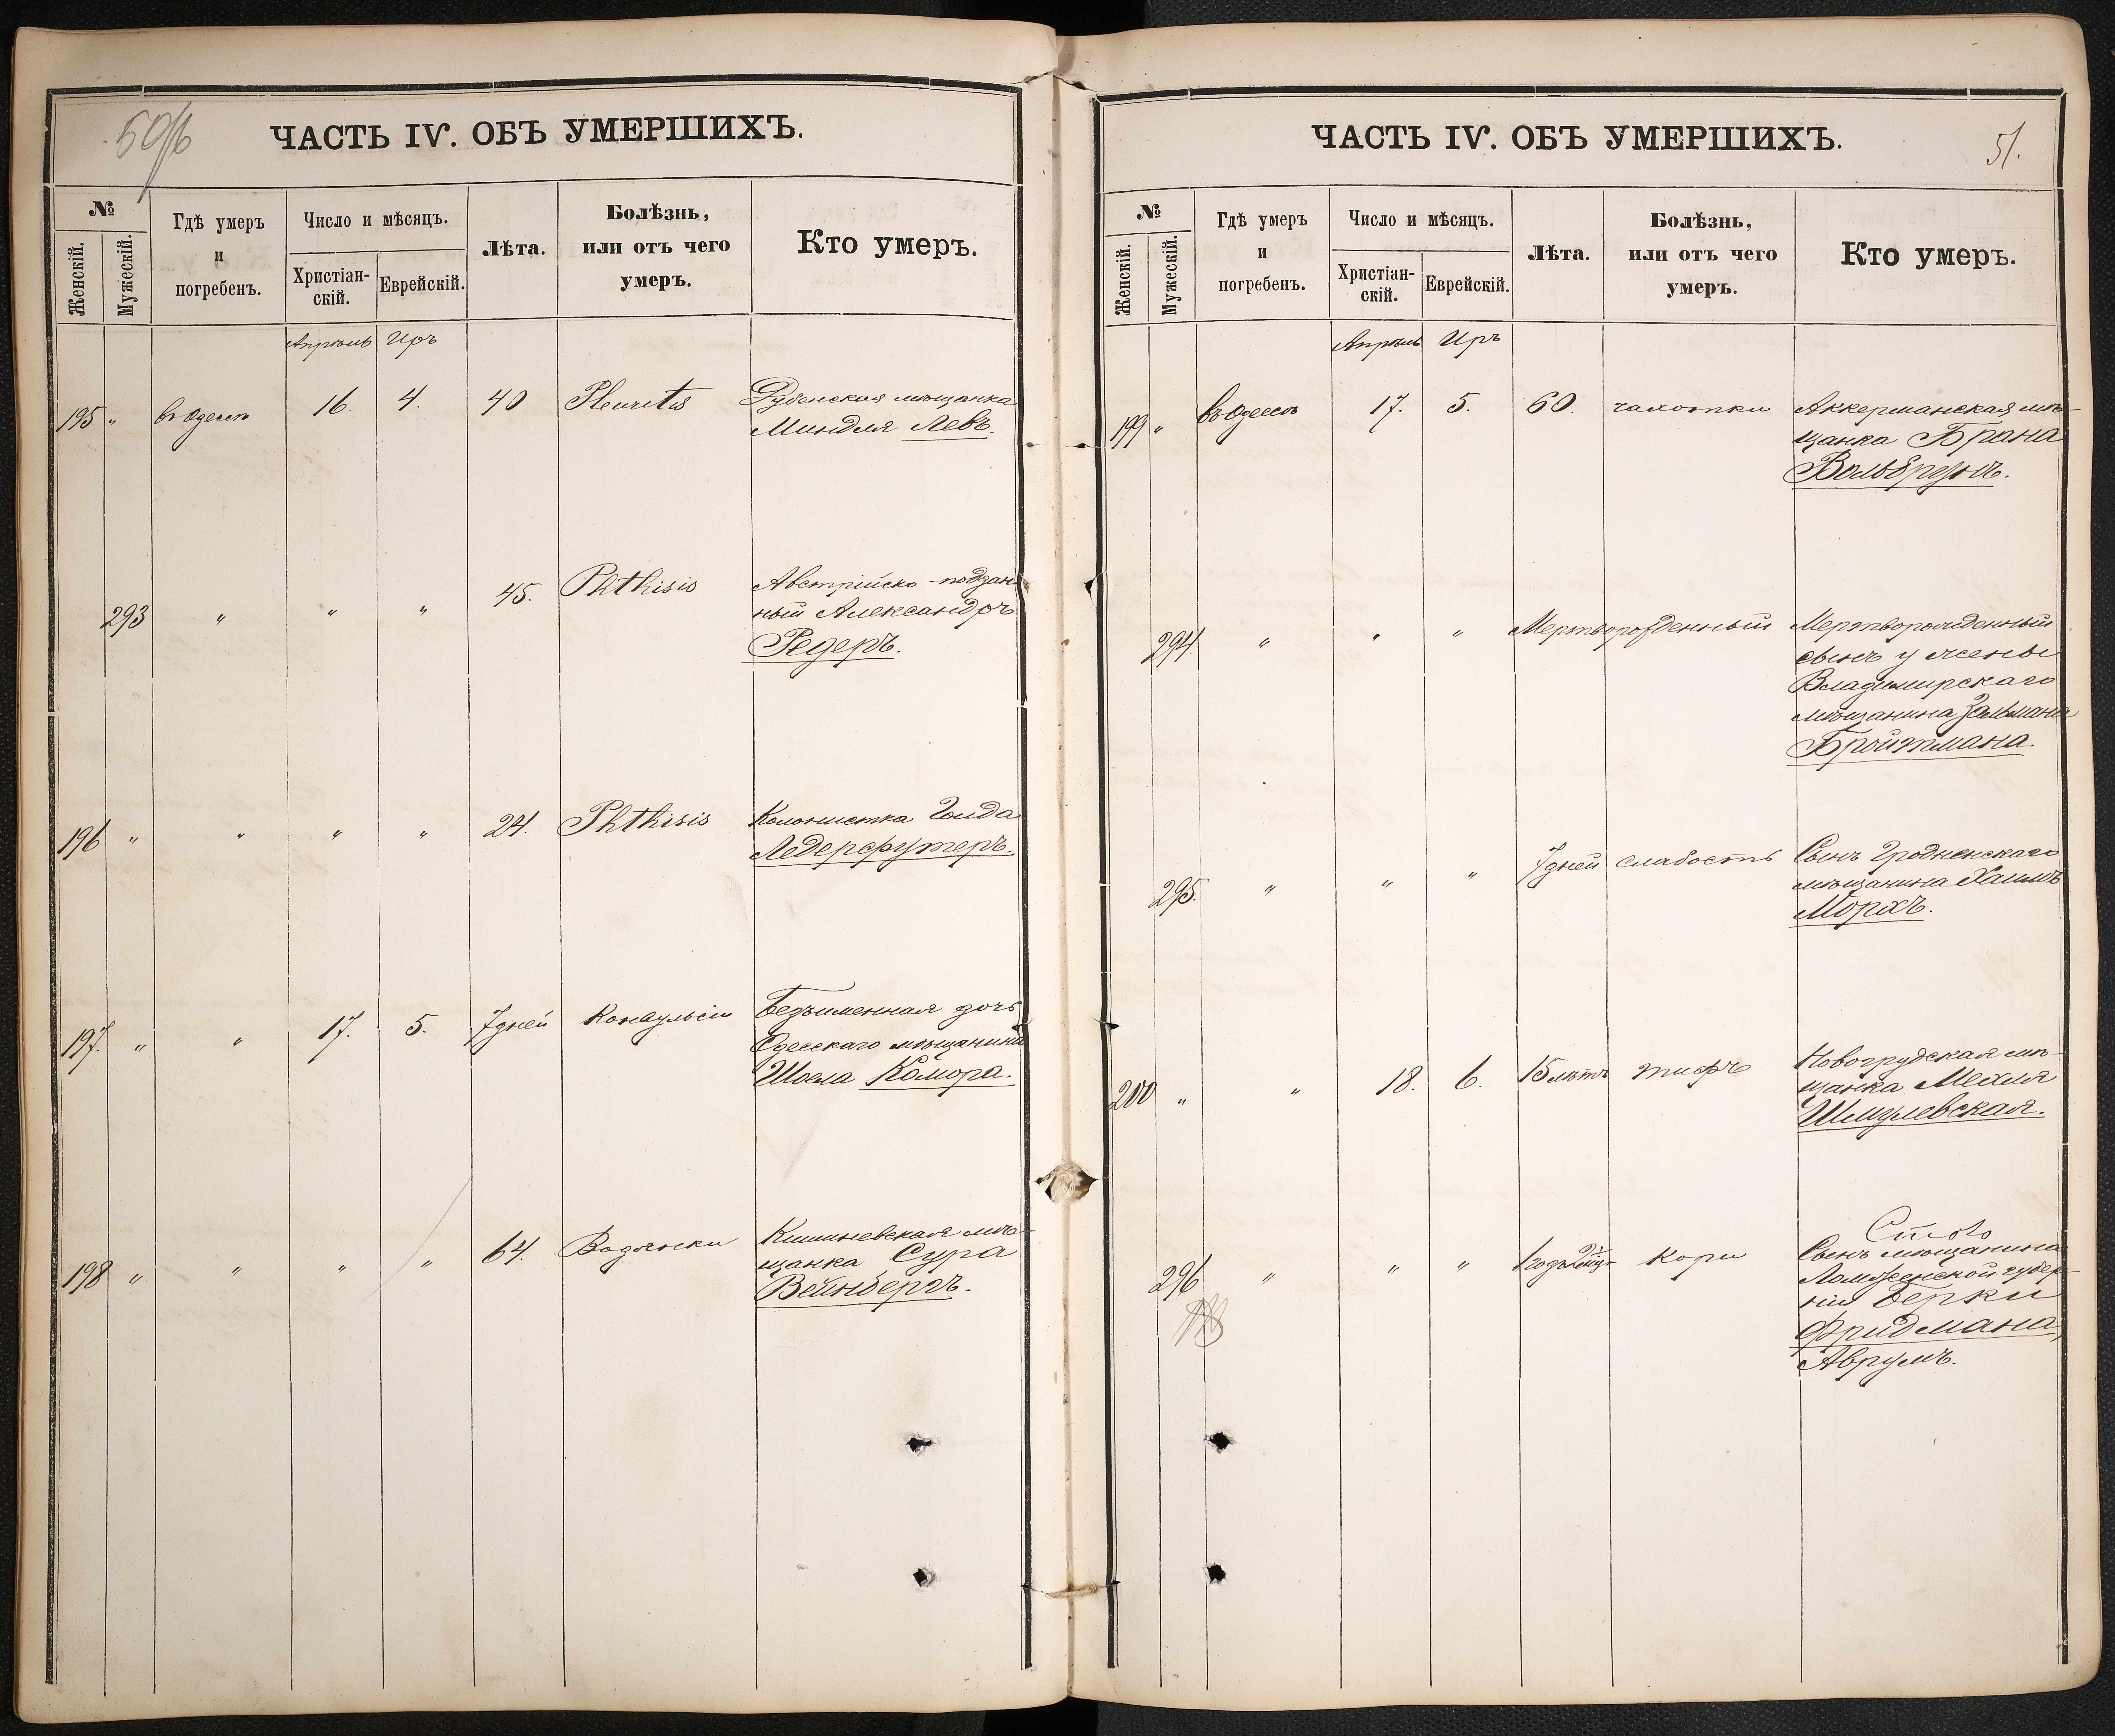 50/б
ЧАСТЬ IV. ОБЪ УМЕРШИХЪ.
№
Женскій.
Мужескій.
Гдѣ умеръ
и
погребенъ.
Число и мѣсяцъ.
Христіан-
скій.
Еврейскій.
Лѣта.
Болѣзнь,
или отъ чего
умеръ.
Кто умеръ.
Апрѣль Иръ
195 " въ Одессѣ 16. 4. 40 Pleuritis Дубенская мѣщанка
Миндля Левъ.
293 " " " 45. Phthisis Австрійско-поддан
ный Александръ
Редеръ.
196 " " " " 24. Phthisis Колонистка Голда
Ледерфутеръ.
197. " " 17. 5. 7 дней Конвульсіи Безъименная дочь
Одесскаго мѣщанина
Шоела Комора.
198 " " " " 64. Водянки Кишиневская мѣ-
щанка Сура
Вейнбергъ.
51.
ЧАСТЬ IV. ОБЪ УМЕРШИХЪ.
№
Женскій.
Мужескій.
Гдѣ умеръ
и
погребенъ.
Число и мѣсяцъ.
Христіан-
скій.
Еврейскій.
Лѣта.
Болѣзнь,
или отъ чего
умеръ.
Кто умеръ.
Апрѣль Иръ
199 " въ Одессѣ 17. 5. 60. чахотки Аккерманская мѣ-
щанка Брана
Вольбрумъ.
294. " " " Мертворожденный Мертворожденный
сынъ у жены
Владимирскаго
мѣщанина Зальмана
Бройтмана.
295. " " " 7 дней слабость Сынъ Гродненскаго
мѣщанина Хаимъ
Морахъ.
200 " " 18. 6. 15 лѣтъ тифъ Новогрудская мѣ-
щанка Мехля
Шмулевская.
296 " " " 1 годъ кори Сынъ мѣщанина
Ломженской губер-
ніи Берки
Фридмана,
Аврумъ.